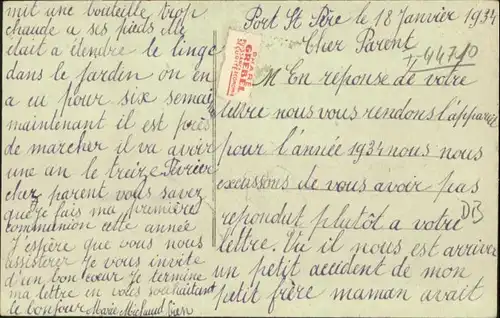 Port St Père le 18 Janvier 1934
Cher Parent
44710
M En reponse de votre
lettre nous vous rendons l'appareil
pour l'année 1934 nous nous
excusons de vous avoir pas
repondut plutôt a votre
lettre. Vu il nous est arriver
un petit accident de mon
petit frère maman avait
DB
mit une bouteille trop
chaude a ses pieds elle
était a étendre le linge
dans le jardin on en
a eu pour six semaines
maintenant il est près
de marcher il va avoir
une an le treize Février
cher parent vous savez
que je fais ma première
communion cette année
J'espère que vous nous
assisterer Je vous invite
d'un bon cœur Je termine
ma lettre en vous souhaitant
le bonjour Marie Michaud